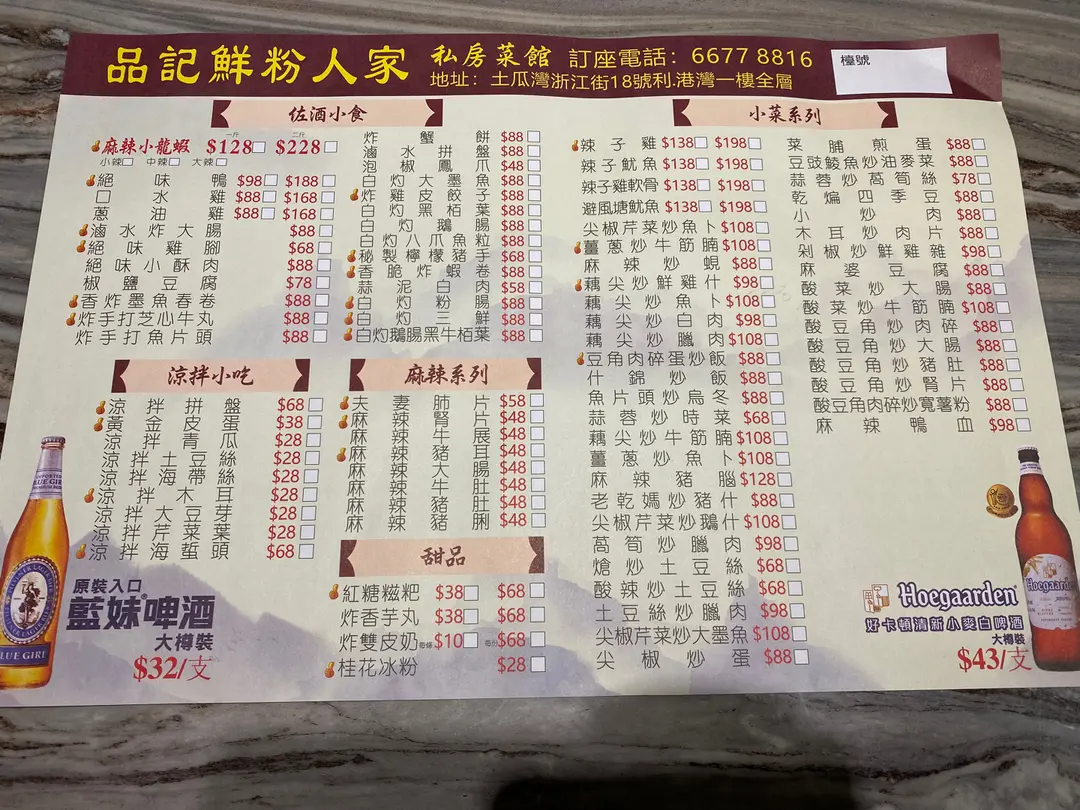 品記鮮粉人家 私房菜館 訂座電話：6677 8816
地址：土瓜灣浙江街18號利.港灣一樓全層
檯號
佐酒小食
一斤 二斤
麻辣小龍蝦 $128 $228
小辣 中辣 大辣
絕味鴨 $98 $188
口水雞 $88 $168
蔥油雞 $88 $168
滷水炸大腸 $88
絕味雞腳 $68
絕味小酥肉 $88
椒鹽豆腐 $78
香炸墨魚春卷 $88
炸手打芝心牛丸 $88
炸手打魚片頭 $88
炸蟹餅 $88
滷水拼盤 $88
泡椒鳳爪 $48
白灼大墨魚 $88
炸雞皮餃子 $88
白灼黑栢葉 $88
白灼鵝腸 $88
白灼八爪魚粒 $88
秘製檸檬豬手 $68
香脆炸蝦卷 $88
蒜泥白肉 $58
白灼粉腸 $88
白灼三鮮 $88
白灼鵝腸黑牛栢葉 $88
涼拌小吃
涼拌拼盤 $68
黃金皮蛋 $38
涼拌青瓜 $28
涼拌土豆絲 $28
涼拌海帶絲 $28
涼拌木耳 $28
涼拌大豆芽 $28
涼拌芹菜葉 $28
涼拌海蜇頭 $68
麻辣系列
夫妻肺片 $58
麻辣腎片 $48
麻辣牛展 $48
麻辣豬耳 $48
麻辣大腸 $48
麻辣牛肚 $48
麻辣豬肚 $48
麻辣豬脷 $48
甜品
紅糖糍粑 $38 $68
炸香芋丸 $38 $68
炸雙皮奶 每條 $10 每份 $68
桂花冰粉 $28
小菜系列
辣子雞 $138 $198
辣子魷魚 $138 $198
辣子雞軟骨 $138 $198
避風塘魷魚 $138 $198
尖椒芹菜炒魚卜 $108
薑蔥炒牛筋腩 $108
麻辣炒蜆 $88
藕尖炒鮮雞什 $98
藕尖炒魚卜 $108
藕尖炒白肉 $98
藕尖炒臘肉 $108
豆角肉碎蛋炒飯 $88
什錦炒飯 $88
魚片頭炒烏冬 $88
蒜蓉炒時菜 $68
藕尖炒牛筋腩 $108
薑蔥炒魚卜 $108
麻辣豬腦 $128
老乾媽炒豬什 $88
尖椒芹菜炒鵝什 $108
萵筍炒臘肉 $98
熗炒土豆絲 $68
酸辣炒土豆絲 $68
土豆絲炒臘肉 $98
尖椒芹菜炒大墨魚 $108
尖椒炒蛋 $88
菜脯煎蛋 $88
豆豉鯪魚炒油麥菜 $88
蒜蓉炒萵筍絲 $78
乾煸四季豆 $88
小炒肉 $88
木耳炒肉片 $88
剁椒炒鮮雞雜 $98
麻婆豆腐 $88
酸菜炒大腸 $88
酸菜炒牛筋腩 $108
酸豆角炒肉碎 $88
酸豆角炒大腸 $88
酸豆角炒豬肚 $88
酸豆角炒腎片 $88
酸豆角肉碎炒寬薯粉 $88
麻辣鴨血 $98
BLUE GIRL
原裝入口
藍妹®啤酒
大樽裝
$32/支
Hoegaarden®
好卡頓清新小麥白啤酒
大樽裝
$43/支
Hoegaarden